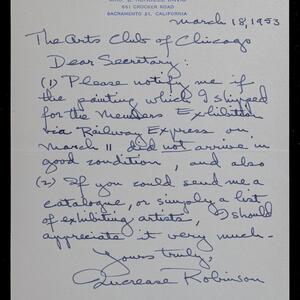 661 CROCKER ROAD
SACRAMENTO 21, CALIFORNIA
March 18, 1953
The Arts Club of Chicago
Dear Secretary:
(1) Please notify me if
the painting which I shipped
for the Members Exhibition
via Railway Express on
March 11 did not arrive in
good condition, and also
(2) If you could send me a
catalogue, or simply a list
of exhibiting artists, I should
appreciate it very much-
Yours truly,
Increase Robinson